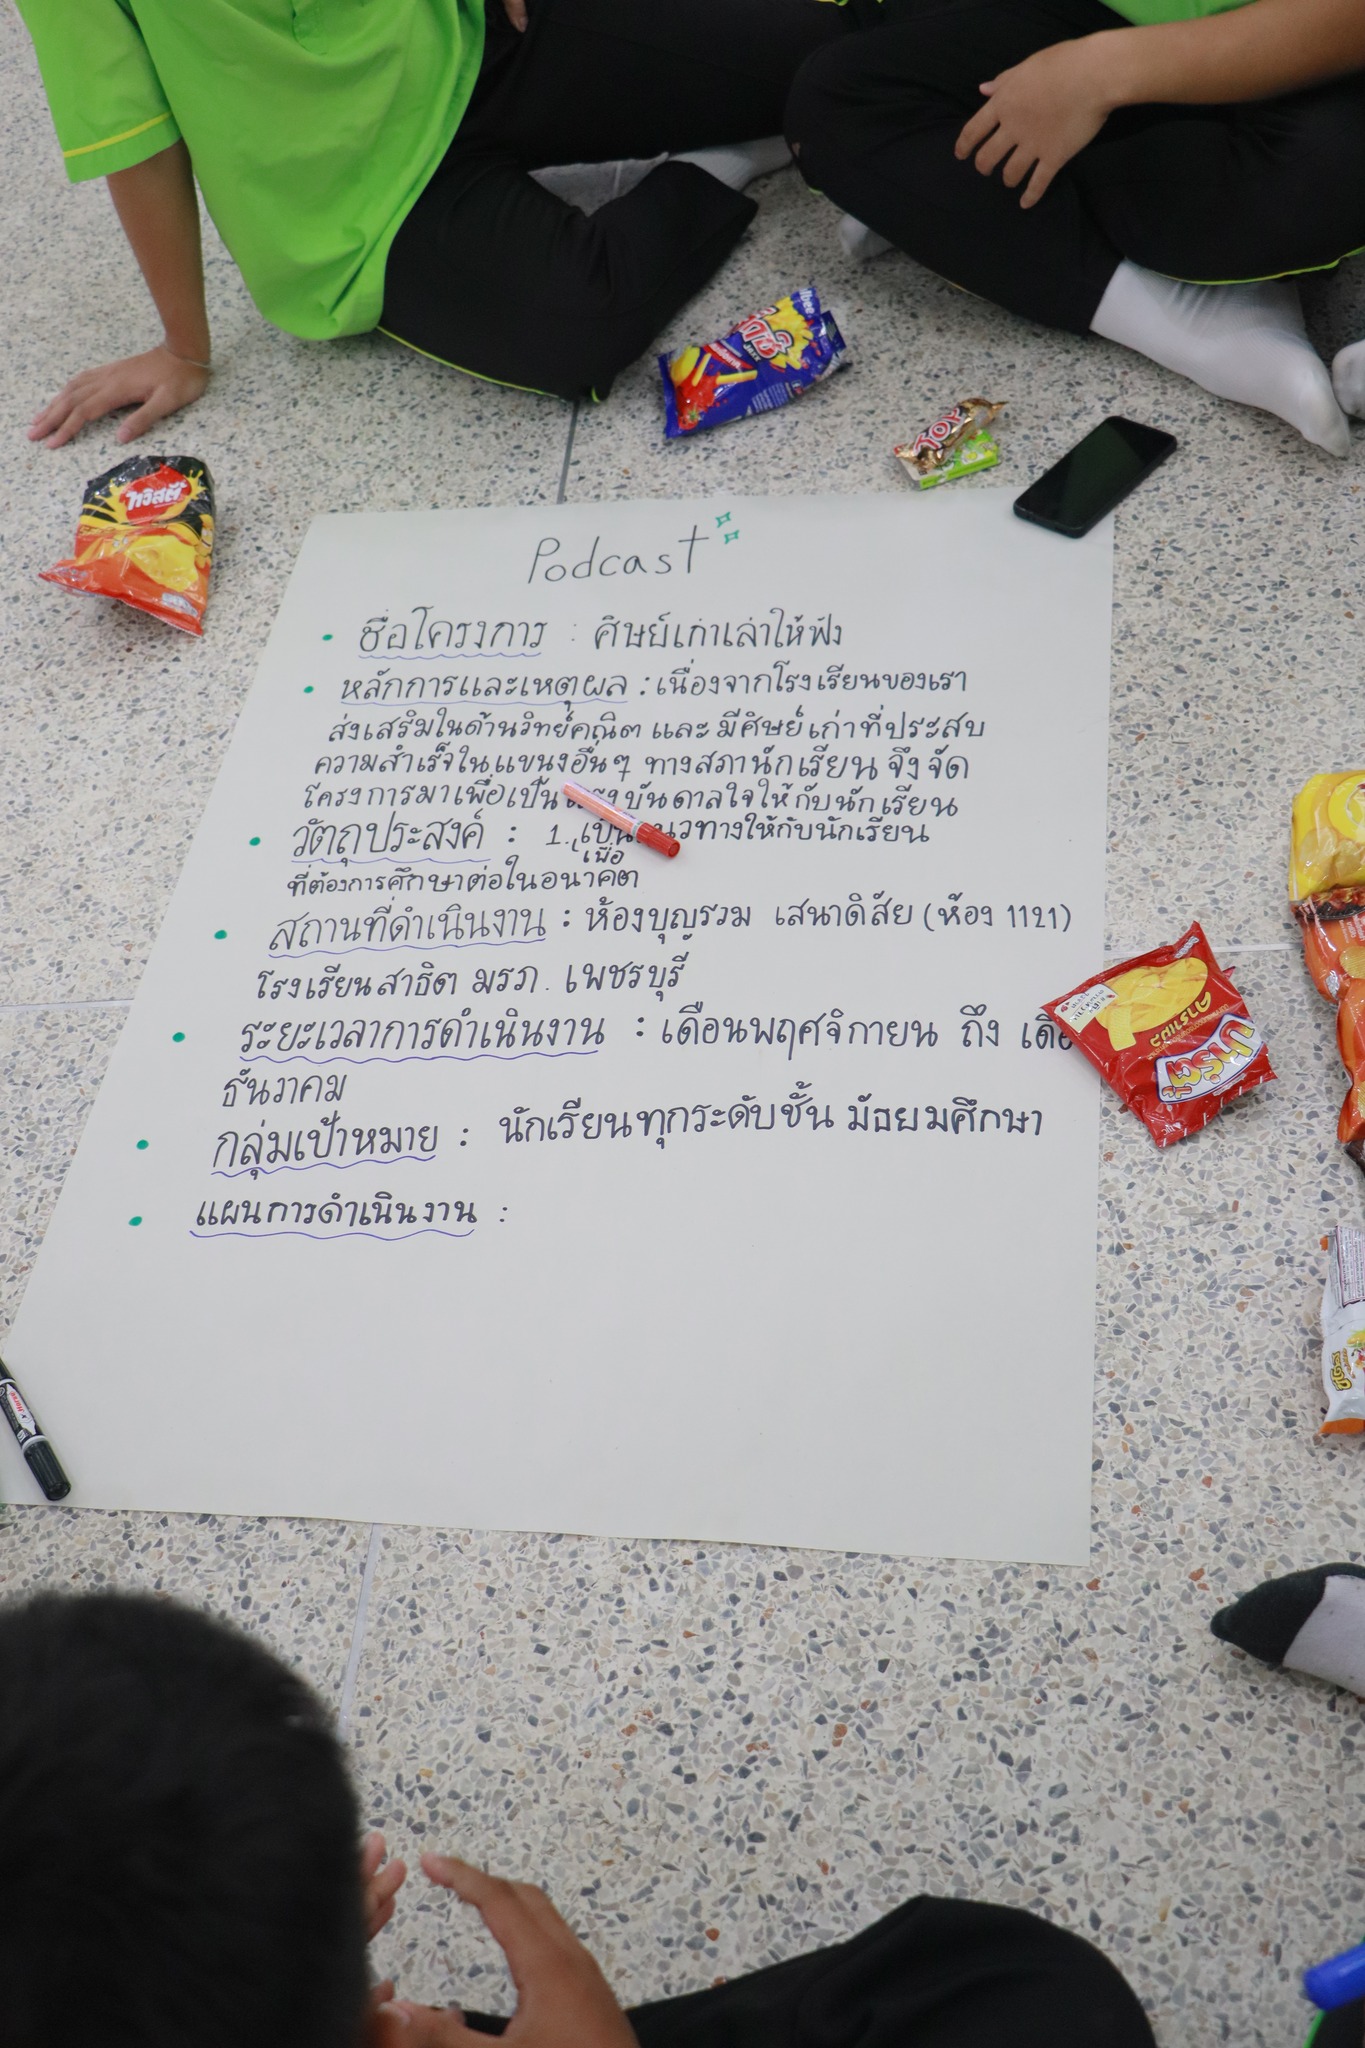 Podcast
ชื่อโครงการ : ศิษย์เก่าเล่าให้ฟัง
หลักการและเหตุผล : เนื่องจากโรงเรียนของเรา
ส่งเสริมในด้านวิทย์คณิต และ มีศิษย์เก่าที่ประสบ
ความสำเร็จในแขนงอื่นๆ ทางสภานักเรียน จึงจัด
โครงการมาเพื่อเป็นแรงบันดาลใจให้กับนักเรียน
วัตถุประสงค์ : 1. เป็นแนวทางให้กับนักเรียน
เพื่อ
ที่ต้องการศึกษาต่อในอนาคต
สถานที่ดำเนินงาน : ห้องบุญรวม เสนาดิสัย (ห้อง 1121)
โรงเรียนสาธิต มรภ. เพชรบุรี
ระยะเวลาการดำเนินงาน : เดือนพฤศจิกายน ถึง
ธันวาคม
กลุ่มเป้าหมาย : นักเรียนทุกระดับชั้น มัธยมศึกษา
แผนการดำเนินงาน :
ทวิสตี้
TOP
ปาร์ตี้
Horse